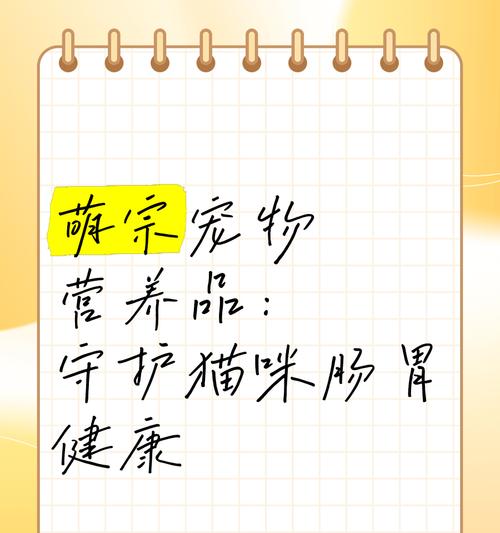 萌宗宠物
营养品：
守护猫咪肠胃
健康